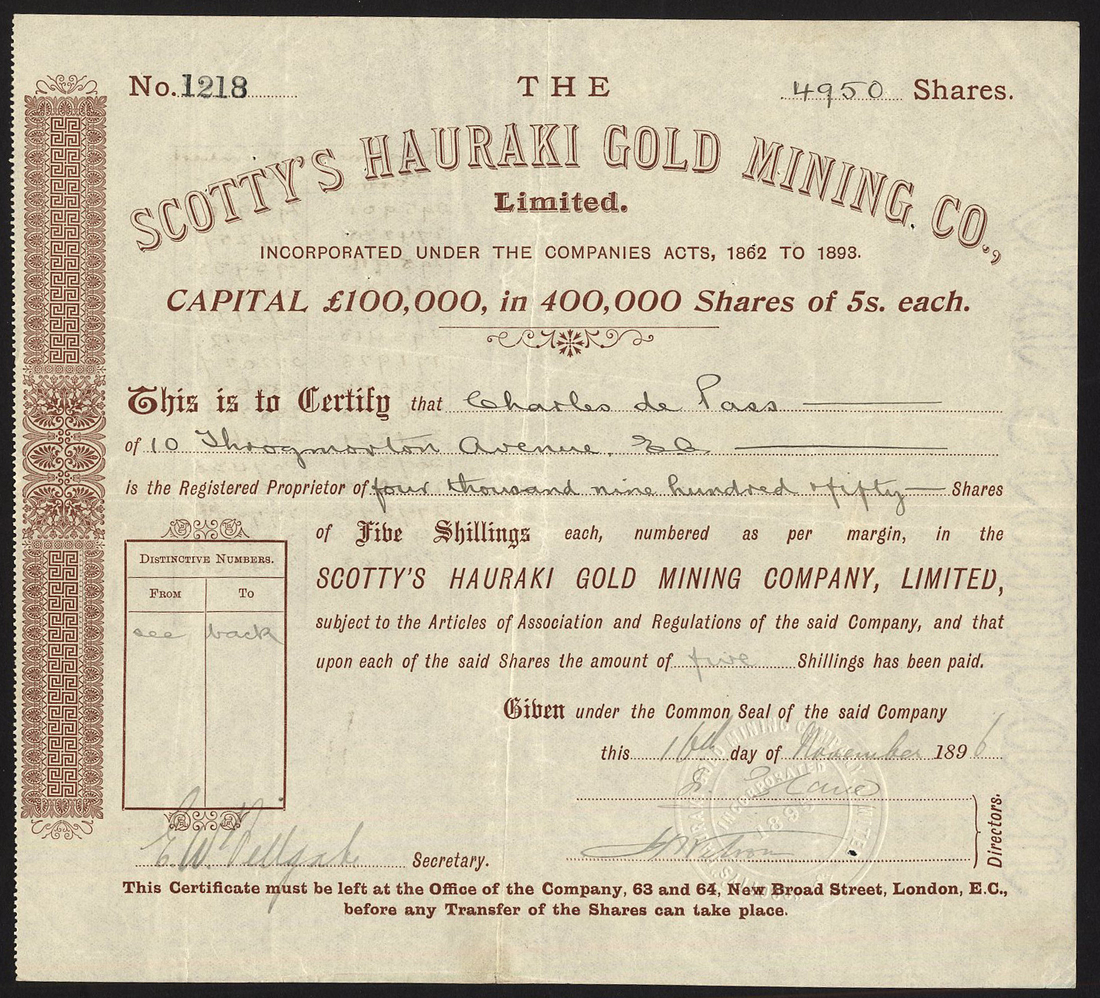 No. 1218 THE 4950 Shares.
SCOTTY'S HAURAKI GOLD MINING. CO.,
Limited.
INCORPORATED UNDER THE COMPANIES ACTS, 1862 TO 1893.
CAPITAL £100,000, in 400,000 Shares of 5s. each.
This is to Certify that Charles de Pass
of 10 Throgmorton Avenue. EC
is the Registered Proprietor of four thousand nine hundred & fifty Shares
of Five Shillings each, numbered as per margin, in the
SCOTTY'S HAURAKI GOLD MINING COMPANY, LIMITED,
subject to the Articles of Association and Regulations of the said Company, and that
upon each of the said Shares the amount of five Shillings has been paid.
DISTINCTIVE NUMBERS.
FROM TO
see back
Given under the Common Seal of the said Company
this 16th day of November 1896
Directors.
Secretary.
This Certificate must be left at the Office of the Company, 63 and 64, New Broad Street, London, E.C.,
before any Transfer of the Shares can take place.